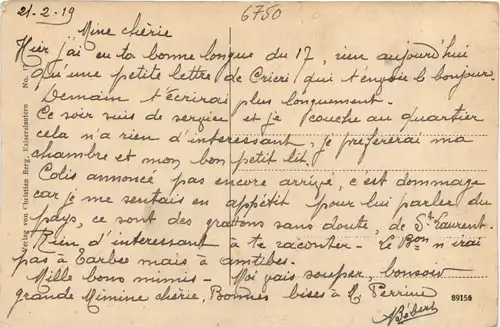 21-2-19
6750
Mine chérie
Hier j'ai eu ta bonne longue du 17, rien aujourd'hui
qu'une petite lettre de Cricri qui t'envoie le bonjour.
Demain t'écrirai plus longuement.
Ce soir suis de service et je couche au quartier
cela n'a rien d'intéressant, je préférerai ma
chambre et mon bon petit lit.
Colis annoncé pas encore arrivé, c'est dommage
car je me sentais en appétit pour lui parler du
pays, ce sont des gratons sans doute, de St Laurent.
Rien d'interessant à te raconter - Le Bon n'irai
pas à Tarbes mais à Antibes.
Mille bons mimis - Moi vais souper, bonsoir
grande Mimine chérie, Bonnes bises à M Perrine
Bébert
Verlag von Christian Berg, Kaiserslautern
No. 17
89156